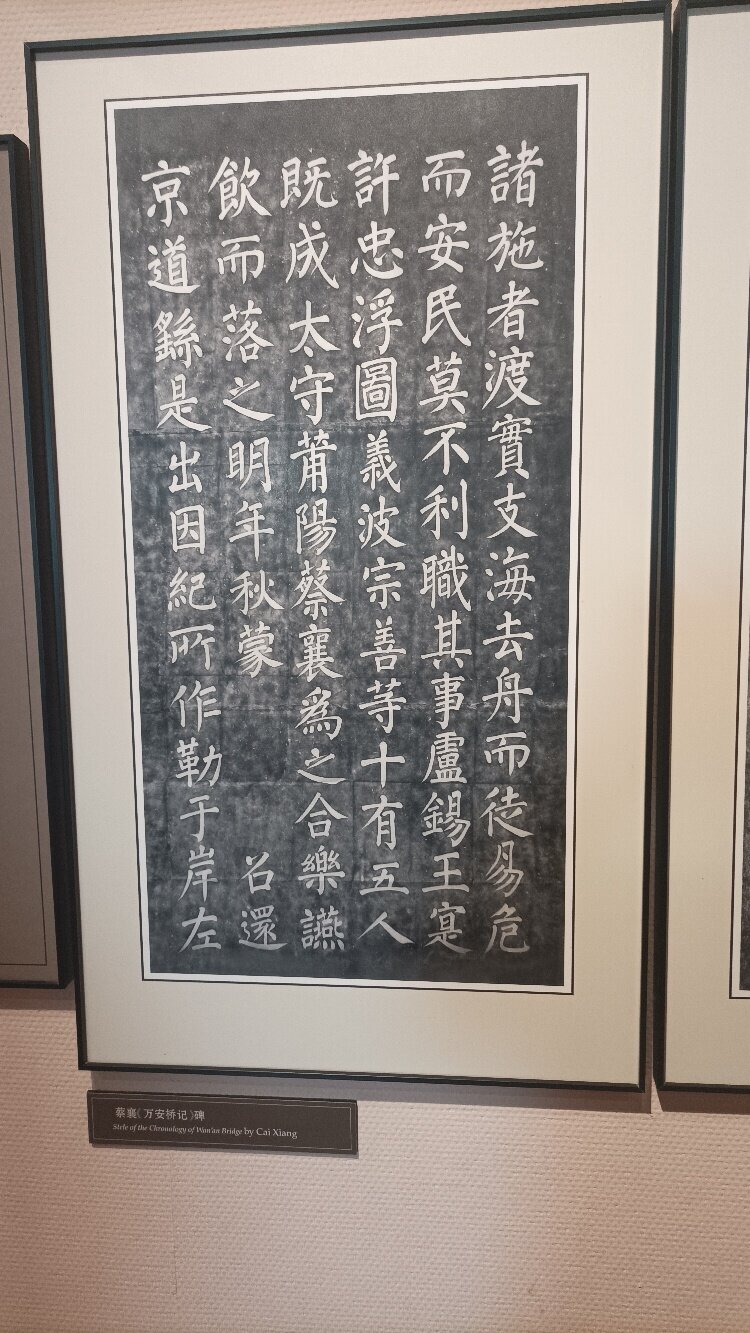 諸施者渡實支海去舟而徒易危
而安民莫不利職其事盧錫王寔
許忠浮圖義波宗善等十有五人
既成太守莆陽蔡襄爲之合樂讌
飲而落之明年秋蒙 召還
京道繇是出因紀所作勒于岸左
蔡襄《万安桥记》碑
Stele of the Chronology of Wan'an Bridge by Cai Xiang